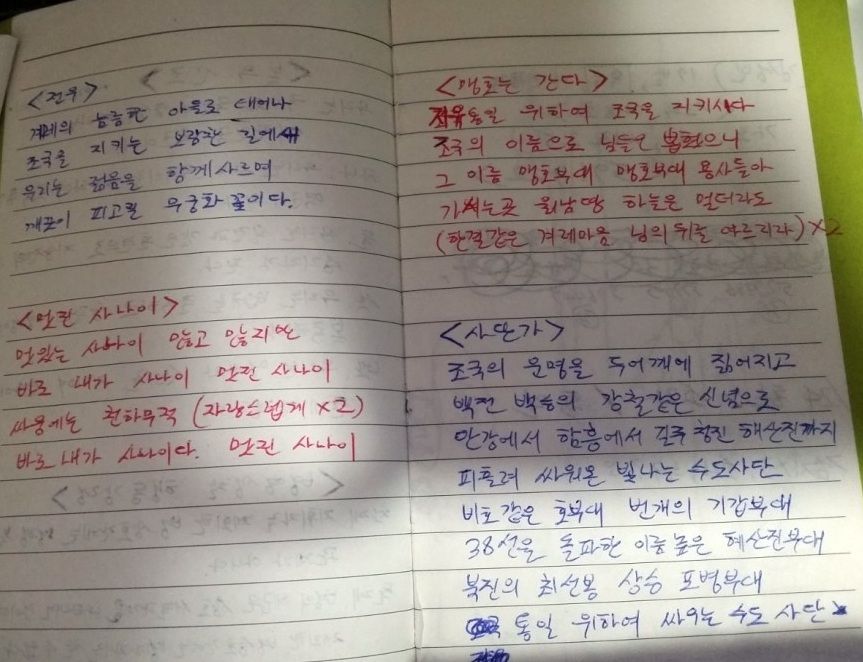 <전우>
겨레의 늠름한 아들로 태어나
조국을 지키는 보람찬 길에서
우리는 젊음을 함께 사르며
깨끗이 피고질 무궁화 꽃이다.
<멋진 사나이>
멋있는 사나이 많고 많지만
바로 내가 사나이 멋진 사나이
싸움에는 천하무적 (자랑스럽게 ×2)
바로 내가 사나이다. 멋진 사나이
<맹호는 간다>
자유통일 위하여 조국을 지키시다
조국의 이름으로 님들은 뽑혔으니
그 이름 맹호부대 맹호부대 용사들아
가시는곳 월남땅 하늘은 멀더라도
(한결같은 겨레마음 님의 뒤를 따르리라) ×2
<사단가>
조국의 운명을 두어깨에 짊어지고
백전 백승의 강철같은 신념으로
안강에서 함흥에서 길주 청진 혜산진까지
피흘려 싸워온 빛나는 수도사단
비호같은 호부대 번개의 기갑부대
38선을 돌파한 이름 높은 혜산진부대
북진의 최선봉 상승 포병부대
통일 위하여 싸우는 수도 사단